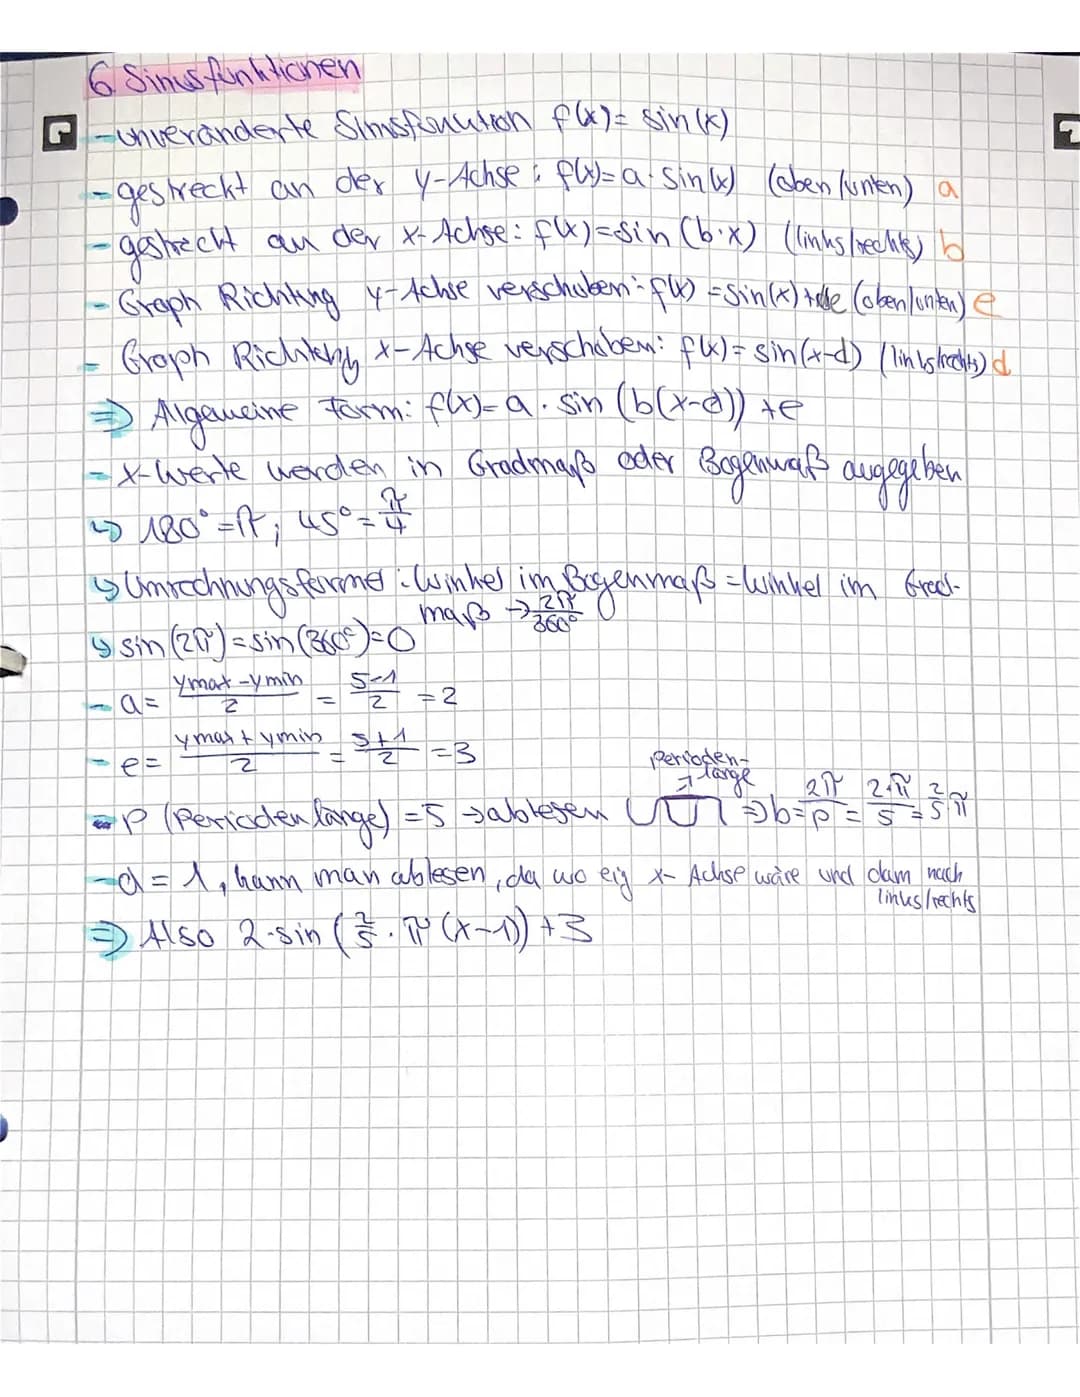 6. Sinusfunktionen
- unveränderte Sinusfunktion f(x) = sin(x)
- gestreckt an der y-Achse: f(x)=a·sin(x) (oben/unten) a
- gestreckt an der x-Achse: f(x)=sin(b·x) (links/rechts) b
- Graph Richtung y-Achse verschoben: f(x)=sin(x)+e (oben/unten) e
- Graph Richtung x-Achse verschoben: f(x)=sin(x-d) (links/rechts) d
⇒ Allgemeine Form: f(x)=a·sin(b(x-d))+e
- x-Werte werden in Gradmaß oder Bogenmaß angegeben
↳ 180°=π; 45°=π/4
↳ Umrechnungsformel: Winkel im Bogenmaß = Winkel im Grad-
maß → 2π/360°
↳ sin(2π)=sin(360°)=0
- a= (ymax-ymin)/2 = (5-1)/2 = 2
- e= (ymax+ymin)/2 = (5+1)/2 = 3
Perioden-
→ länge
- P (Periodenlänge) = 5 → ablesen ⇒ b= 2π/p = 2·π/5 = 2/5 π
- d = 1, kann man ablesen, da wo eig x-Achse wäre und dann nach
links/rechts
⇒ Also 2·sin(2/5·π(x-1))+3